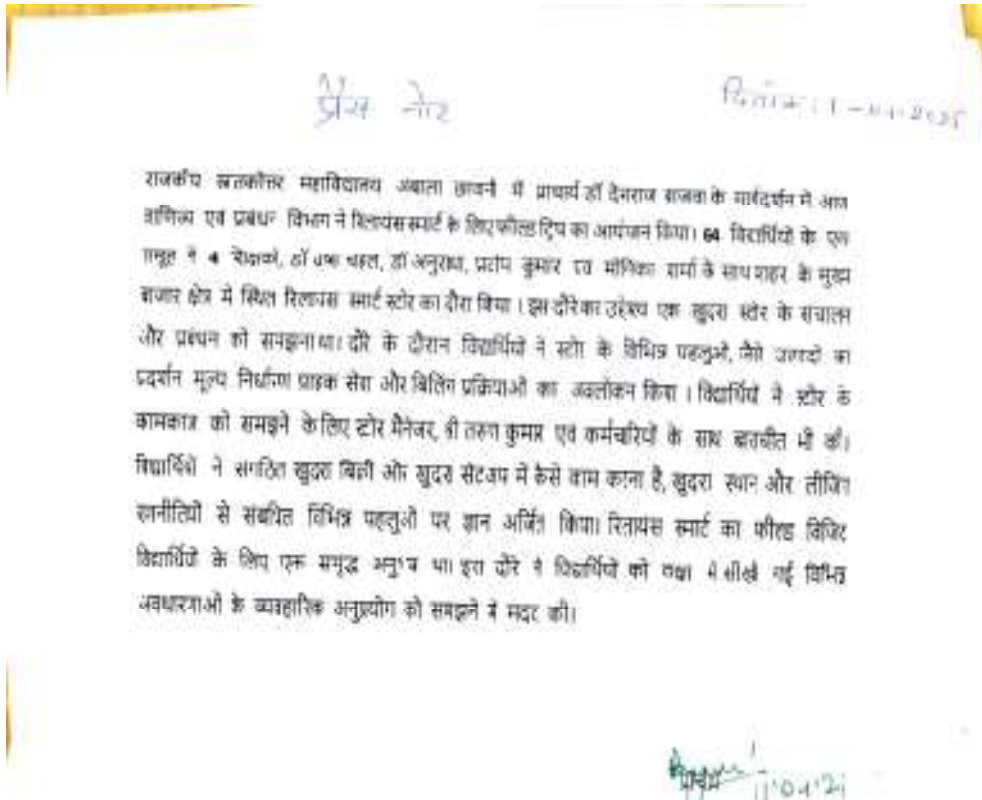 प्रैस नोट
दिनांक: 1 -04-2025
राजकीय स्नातकोत्तर महाविद्यालय अंबाला छावनी में प्राचार्य डॉ देशराज बाजवा के मार्गदर्शन में आज
वाणिज्य एवं प्रबंधन विभाग ने रिलायंस स्मार्ट के लिए फील्ड ट्रिप का आयोजन किया। 64 विद्यार्थियों के एक
समूह ने 4 शिक्षकों, डॉ उषा चहल, डॉ अनुराधा, प्रदीप कुमार एवं मोनिका शर्मा के साथ शहर के मुख्य
बाजार क्षेत्र में स्थित रिलायंस स्मार्ट स्टोर का दौरा किया । इस दौरे का उद्देश्य एक खुदरा स्टोर के संचालन
और प्रबंधन को समझना था। दौरे के दौरान विद्यार्थियों ने स्टोर के विभिन्न पहलुओं, जैसे उत्पादों का
प्रदर्शन मूल्य निर्धारण ग्राहक सेवा और बिलिंग प्रक्रियाओं का अवलोकन किया । विद्यार्थियों ने स्टोर के
कामकाज को समझने के लिए स्टोर मैनेजर, श्री तरुण कुमार एवं कर्मचारियों के साथ बातचीत भी की।
विद्यार्थियों ने संगठित खुदरा बिक्री और खुदरा सेटअप में कैसे काम करना है, खुदरा स्थान और लीजिंग
रणनीतियों से संबंधित विभिन्न पहलुओं पर ज्ञान अर्जित किया। रिलायंस स्मार्ट का फील्ड विजिट
विद्यार्थियों के लिए एक समृद्ध अनुभव था। इस दौरे ने विद्यार्थियों को कक्षा में सीखी गई विभिन्न
अवधारणाओं के व्यावहारिक अनुप्रयोग को समझने में मदद की।
प्राचार्य